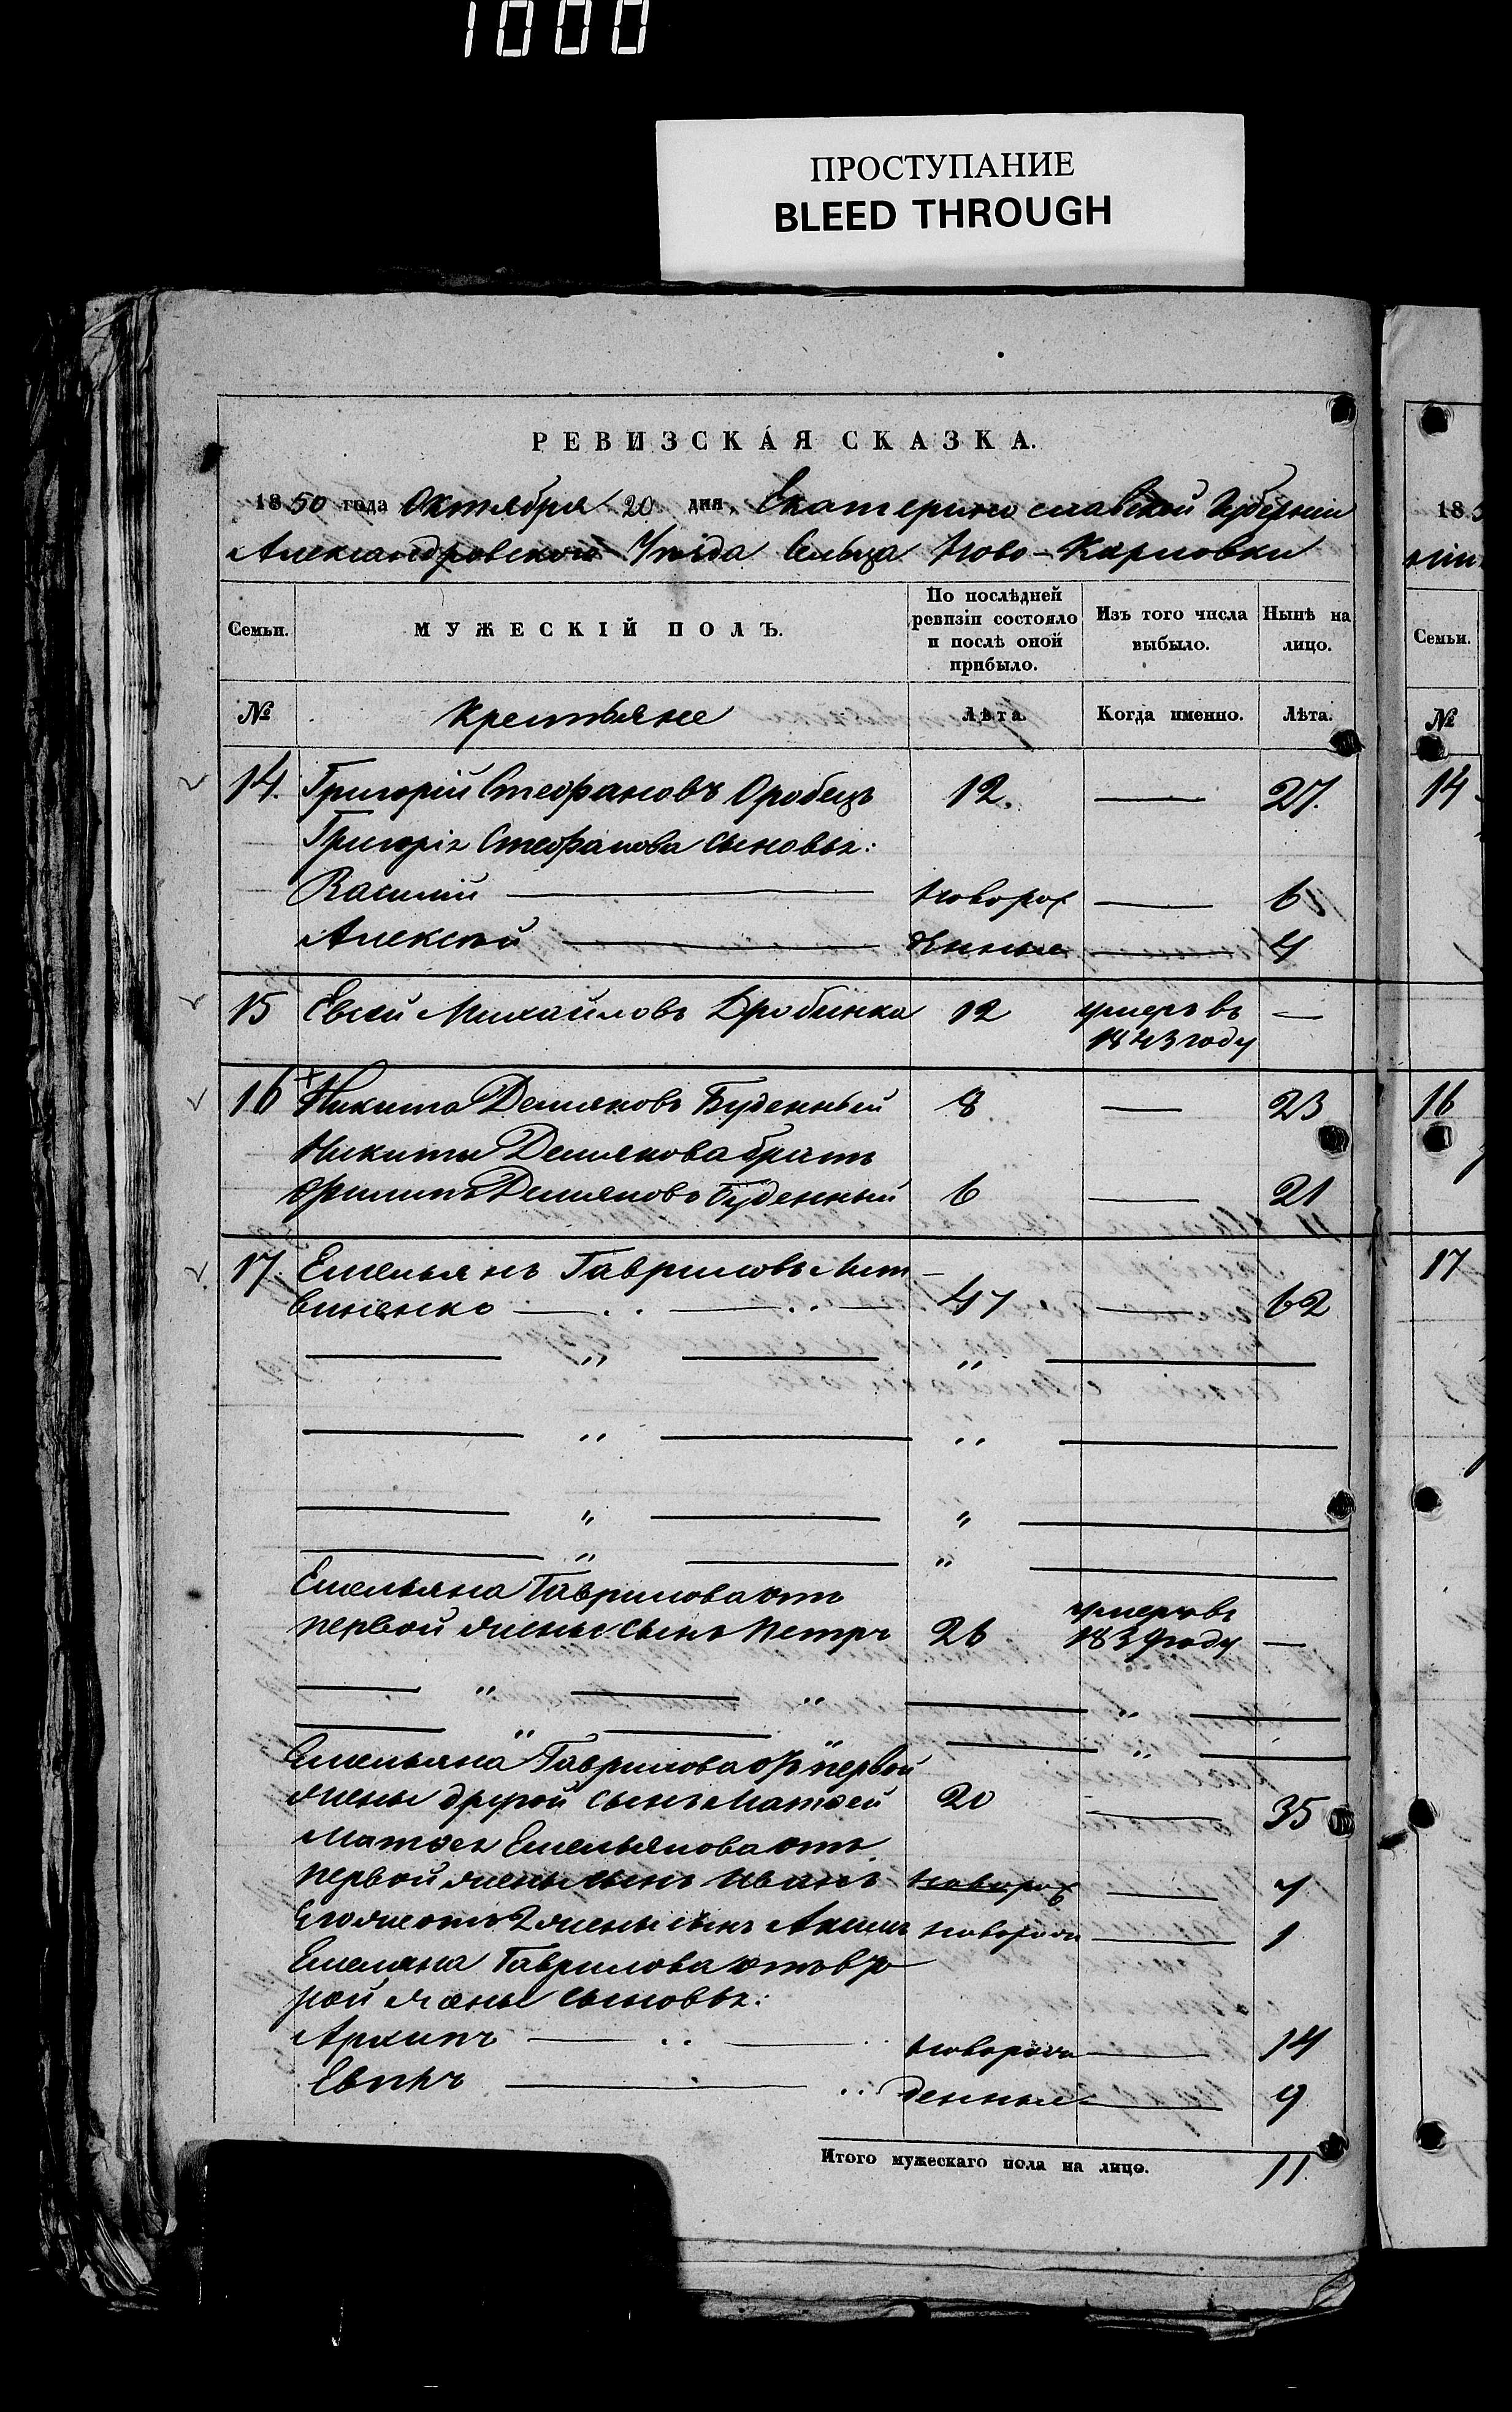 1000
ПРОСТУПАНИЕ
BLEED THROUGH
РЕВИЗСКАЯ СКАЗКА.
1850 года Октября 20 дня, Екатеринославской Губернии
Александровского Уѣзда Сельца Ново-Карловки
Семьи. МУЖЕСКІЙ ПОЛЪ. По послѣдней ревизіи состояло и послѣ оной прибыло. Изъ того числа выбыло. Нынѣ на лицо.
№ Крестьяне Лѣта. Когда именно. Лѣта.
14. Григорій Стефановъ Оробецъ 12. — 27.
Григорія Стефанова сыновья:
Василій — новорож — 6
Алексѣй — денные — 4
15 Евсей Михайловъ Дробинка 12 умеръ въ —
1843 году
16 Никита Демяновъ Буденный 8 — 23
Никиты Демянова братъ
Филипъ Демяновъ Буденный 6 — 21
17. Емельянъ Гавриловъ Лит-
виненко — 47 — 62
— „ — „ —
— „ — „ —
— „ — „ —
— „ — „ —
Емельяна Гаврилова отъ
первой жены сынъ Петръ 26 умеръ въ 1839 году —
— „ — „ — „ —
— „ — — „ —
Емельяна Гаврилова отъ первой
жены другой сынъ Матвей 20 — 35
Матвея Емельянова отъ
первой жены сынъ Иванъ новорож — 7
Его же отъ 2 жены сынъ Акимъ новорож — 1
Емеляна Гаврилова отъ вто
рой жены сыновья:
Архипъ — новорож — 14
Евтихъ — денные — 9
Итого мужескаго пола на лицо. 11.
185
Семьи.
№
14
16
17